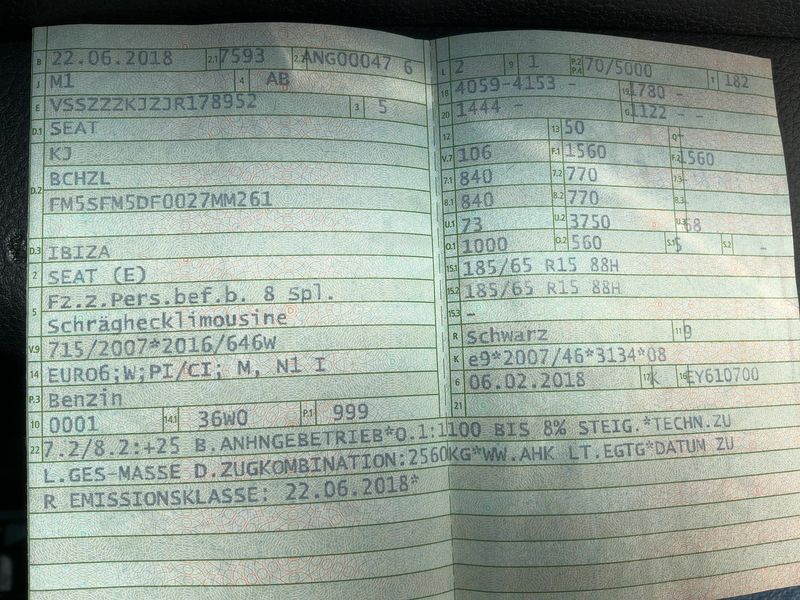 B 22.06.2018 2.1 7593 2.2 ANG00047 6
J M1 4 AB
E VSSZZZKJZJR178952 3 5
D.1 SEAT
KJ
D.2 BCHZL
FM5SFM5DF0027MM261
D.3 IBIZA
2 SEAT (E)
5 Fz.z.Pers.bef.b. 8 Spl.
Schräghecklimousine
V.9 715/2007*2016/646W
14 EURO6;W;PI/CI; M, N1 I
P.3 Benzin
10 0001 14.1 36W0 P.1 999
L 2 9 1 P.2 P.4 70/5000 T 182
18 4059-4153 - 19 1780 -
20 1444 - G 1122 -
12 13 50 Q -
V.7 106 F.1 1560 F.2 1560
7.1 840 7.2 770 7.3 -
8.1 840 8.2 770 8.3 -
U.1 73 U.2 3750 U.3 68
O.1 1000 O.2 560 S.1 5 S.2 -
15.1 185/65 R15 88H
15.2 185/65 R15 88H
15.3 -
R Schwarz 11 9
K e9*2007/46*3134*08
6 06.02.2018 17 K 16 EY610700
21
22 7.2/8.2:+25 B.ANHNGEBETRIEB*O.1:1100 BIS 8% STEIG.*TECHN.ZU
L.GES-MASSE D.ZUGKOMBINATION:2560KG*WW.AHK LT.EGTG*DATUM ZU
R EMISSIONSKLASSE: 22.06.2018*